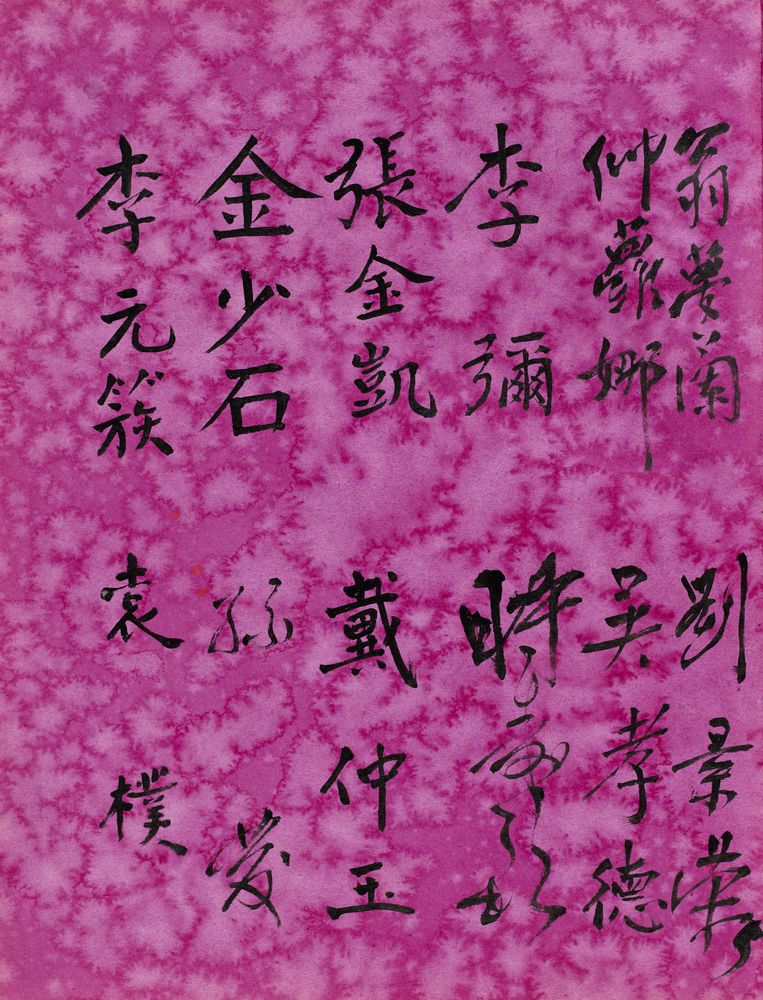 翁夢蘭
仲蘿娜
李彌
張金凱
金少石
李元簇
劉景榮
吳孝德
戴仲玉
孫
袁樸